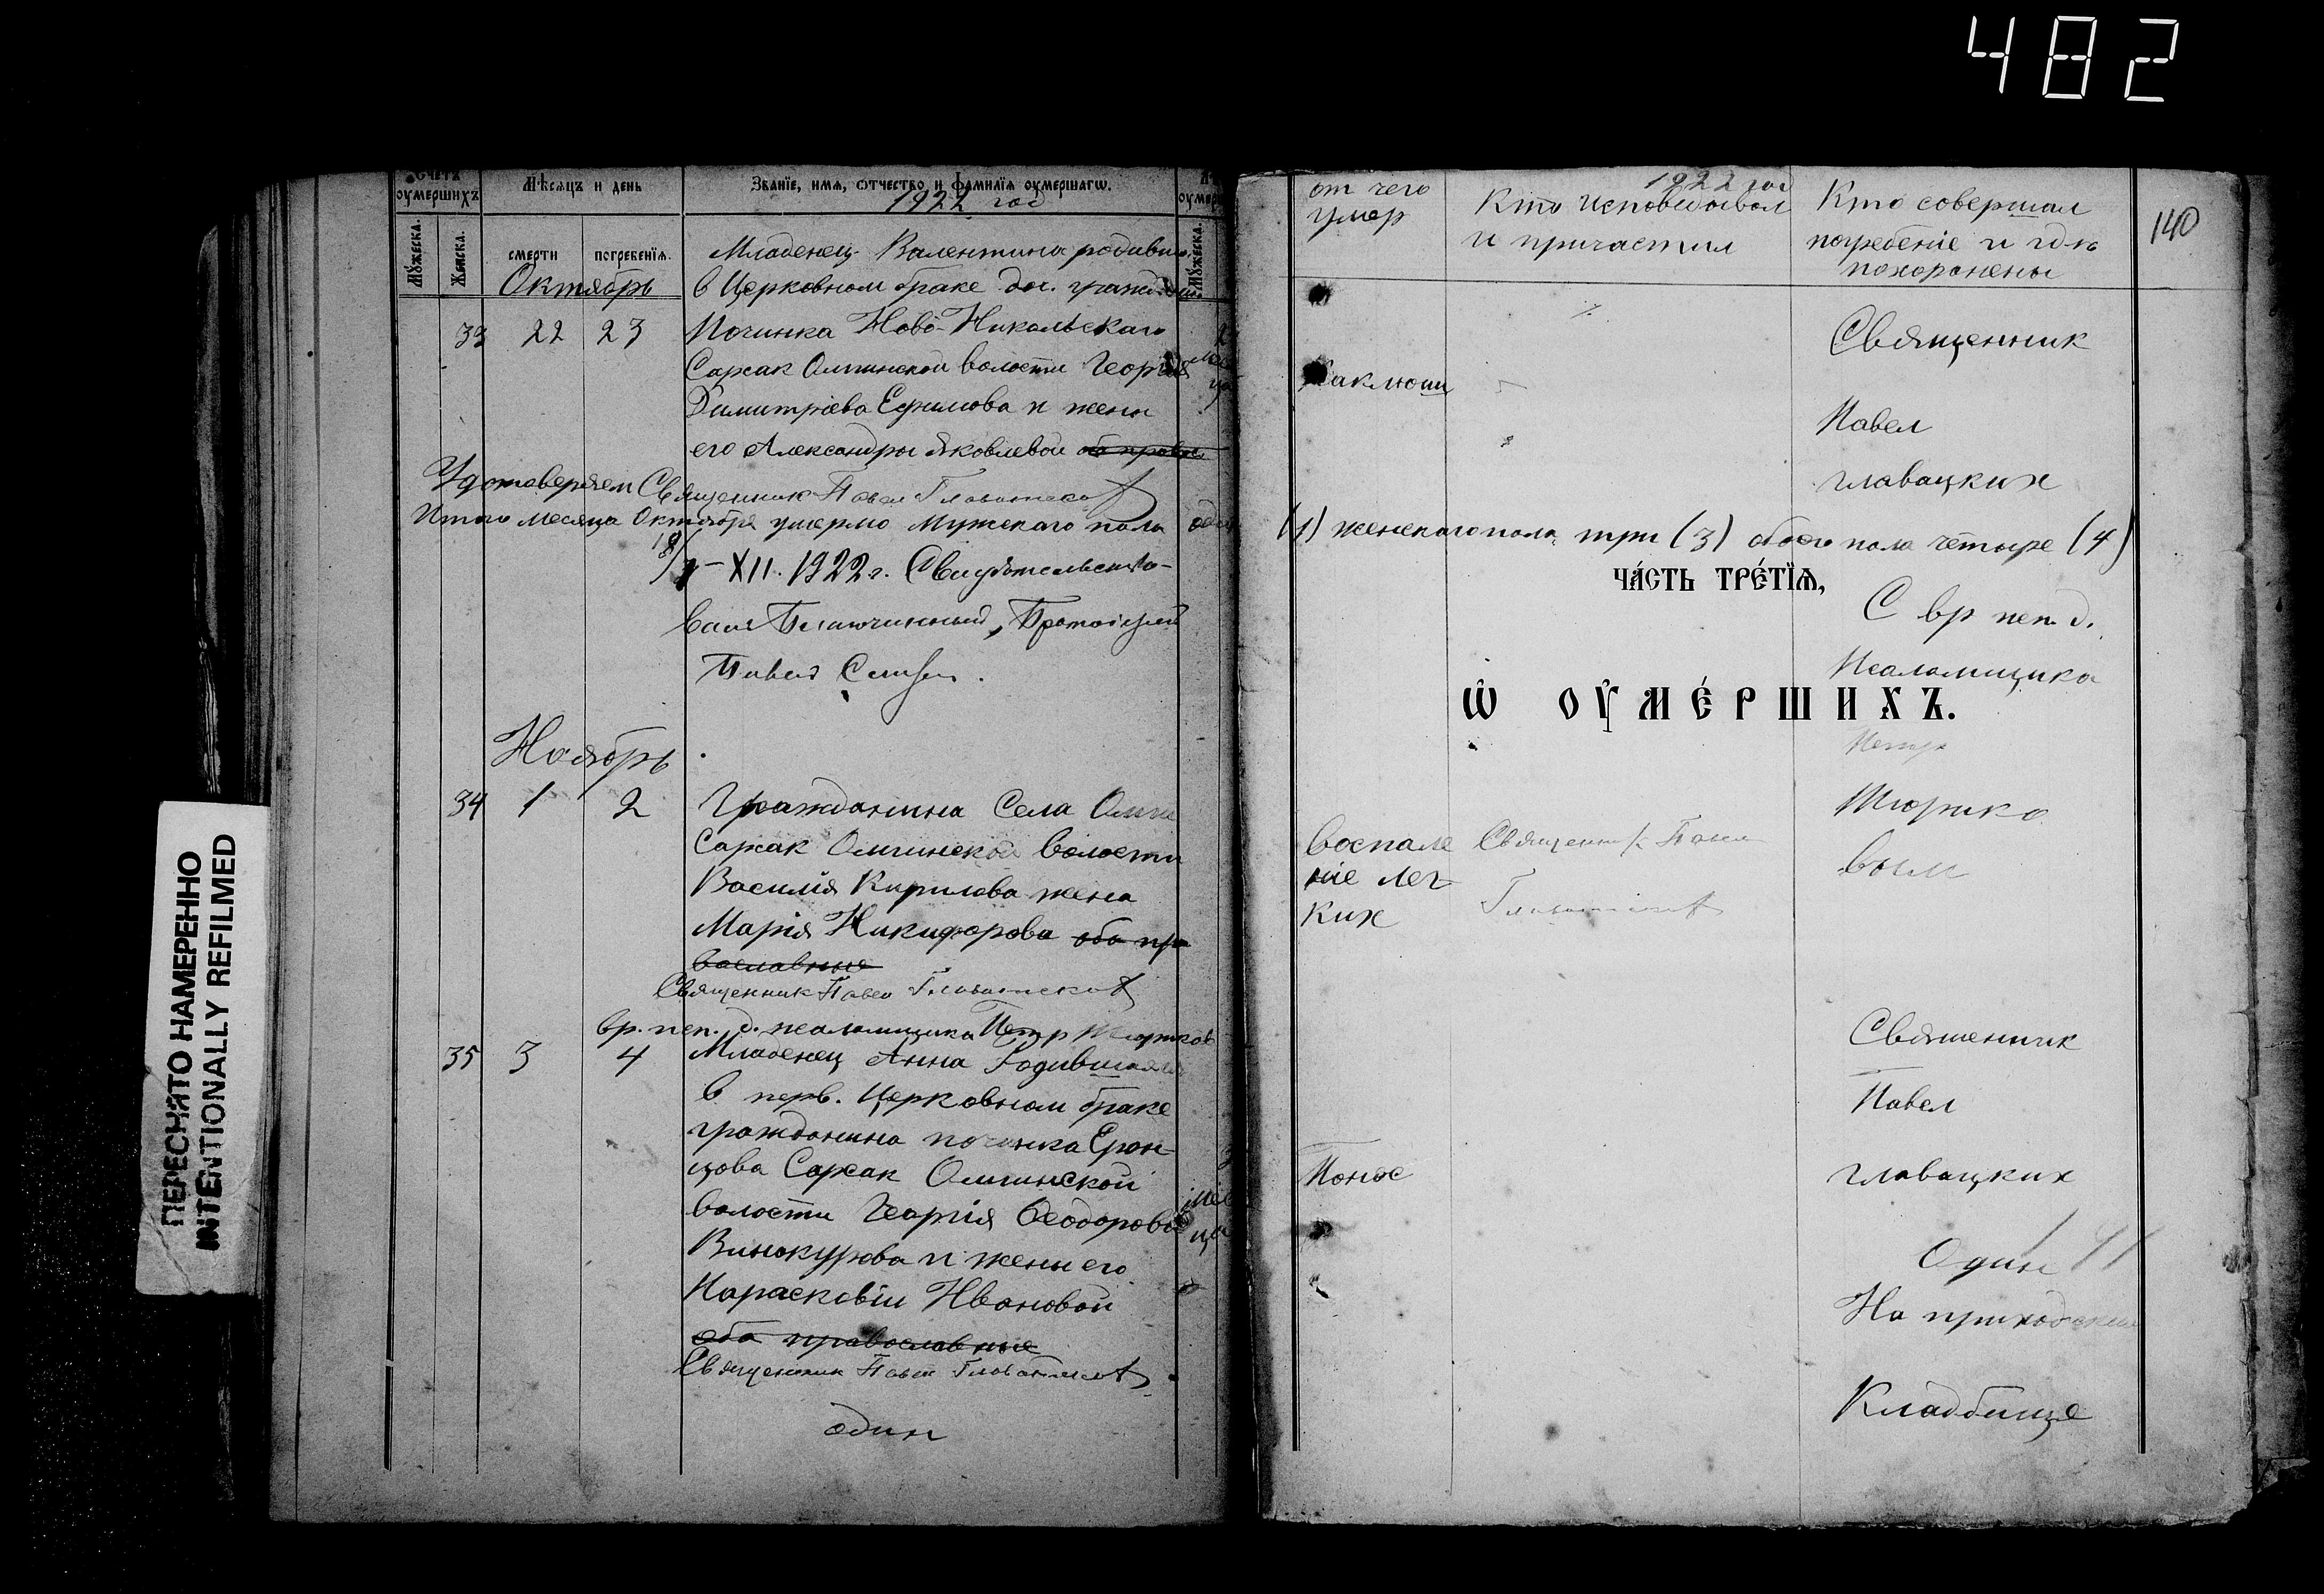 482
Счетъ оумершихъ
Мѣсяцъ и день
Званїе, имя, ѿтчество и фамилїя оумершагѡ.
1922 год
Мꙋжеска.
Женска.
смерти
погребенїя.
Октябрь
Младенец Валентина родивш.
в Церковном браке гражд
33 22 23 Починка Ново-Никольскаго
Сарсак Омгинской волости Георгія
Димитріева Ефимова и жены
его Александры Яковлевой оба правос
Удостоверяем Священник Павел Главатских
Итого месяца Октября умерло Мужскаго пола один
XII. 1922 г. Свидѣтельство-
валъ Благочинный, Протоіерей
Павел
Ноябрь
34 1 2 Гражданина Села Омги
Сарсак Омгинской волости
Василія Кирилова жена
Марія Никифорова оба пра
вославные
Священник Павел Главатских
вр. исп. д. псаломщика Петр Тюриков
35 3 4 Младенец Анна Родившаяся
в перв. Церковном браке
гражданина починка Ерон-
цова Сарсак Омгинской
волости Георгія Ѳеодорова
Винокурова и жены его
Параскевіи Ивановой
оба православные
Священник Павел Главатских
один
1922 год
от чего умер
Кто исповедовал и причастил
Кто совершал погребеніе и где похоронены
140
Священник
Каклюши
Павел
Главацких
(1) женскаго пола три (3) обоего пола четыре (4)
ЧА́СТЬ ТРЕ́ТЇѦ,
С вр исп. д.
Псаломщика
Ѡ ОУМЕ́РШИХЪ.
Петр
Тюрико
вым
Воспале
ніе лег-
ких
Священник Павел
Главатских
Священник
Павел
Понос
Главацких
Один
На приходском
Кладбище
ПЕРЕСНЯТО НАМЕРЕННО
INTENTIONALLY REFILMED